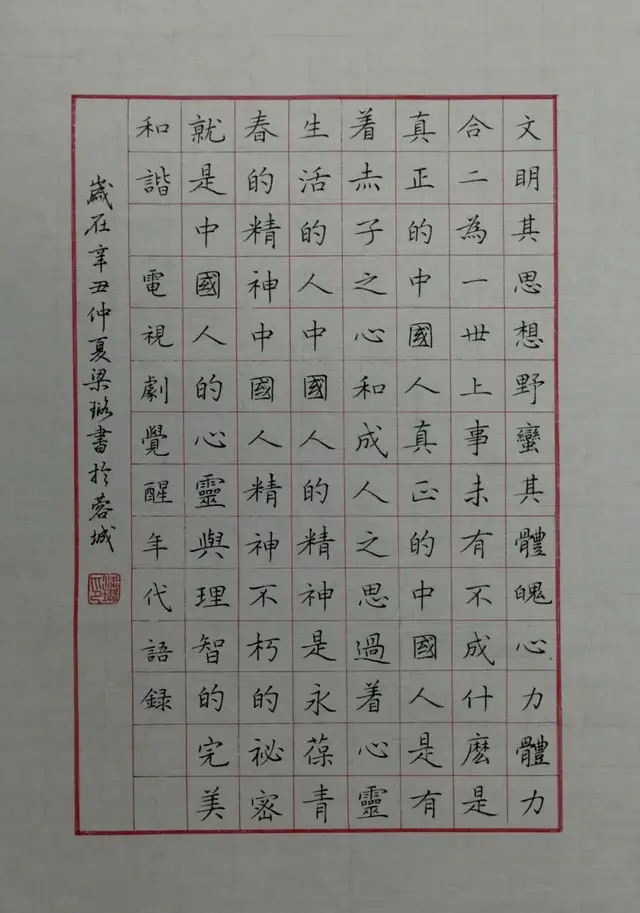 文明其思想野蠻其體魄心力體力
合二為一世上事未有不成什麽是
真正的中國人真正的中國人是有
着赤子之心和成人之思過着心靈
生活的人中國人的精神是永葆青
春的精神中國人精神不朽的祕密
就是中國人的心靈與理智的完美
和諧 電視劇覺醒年代語録
歲在辛丑仲夏梁璐書於蓉城